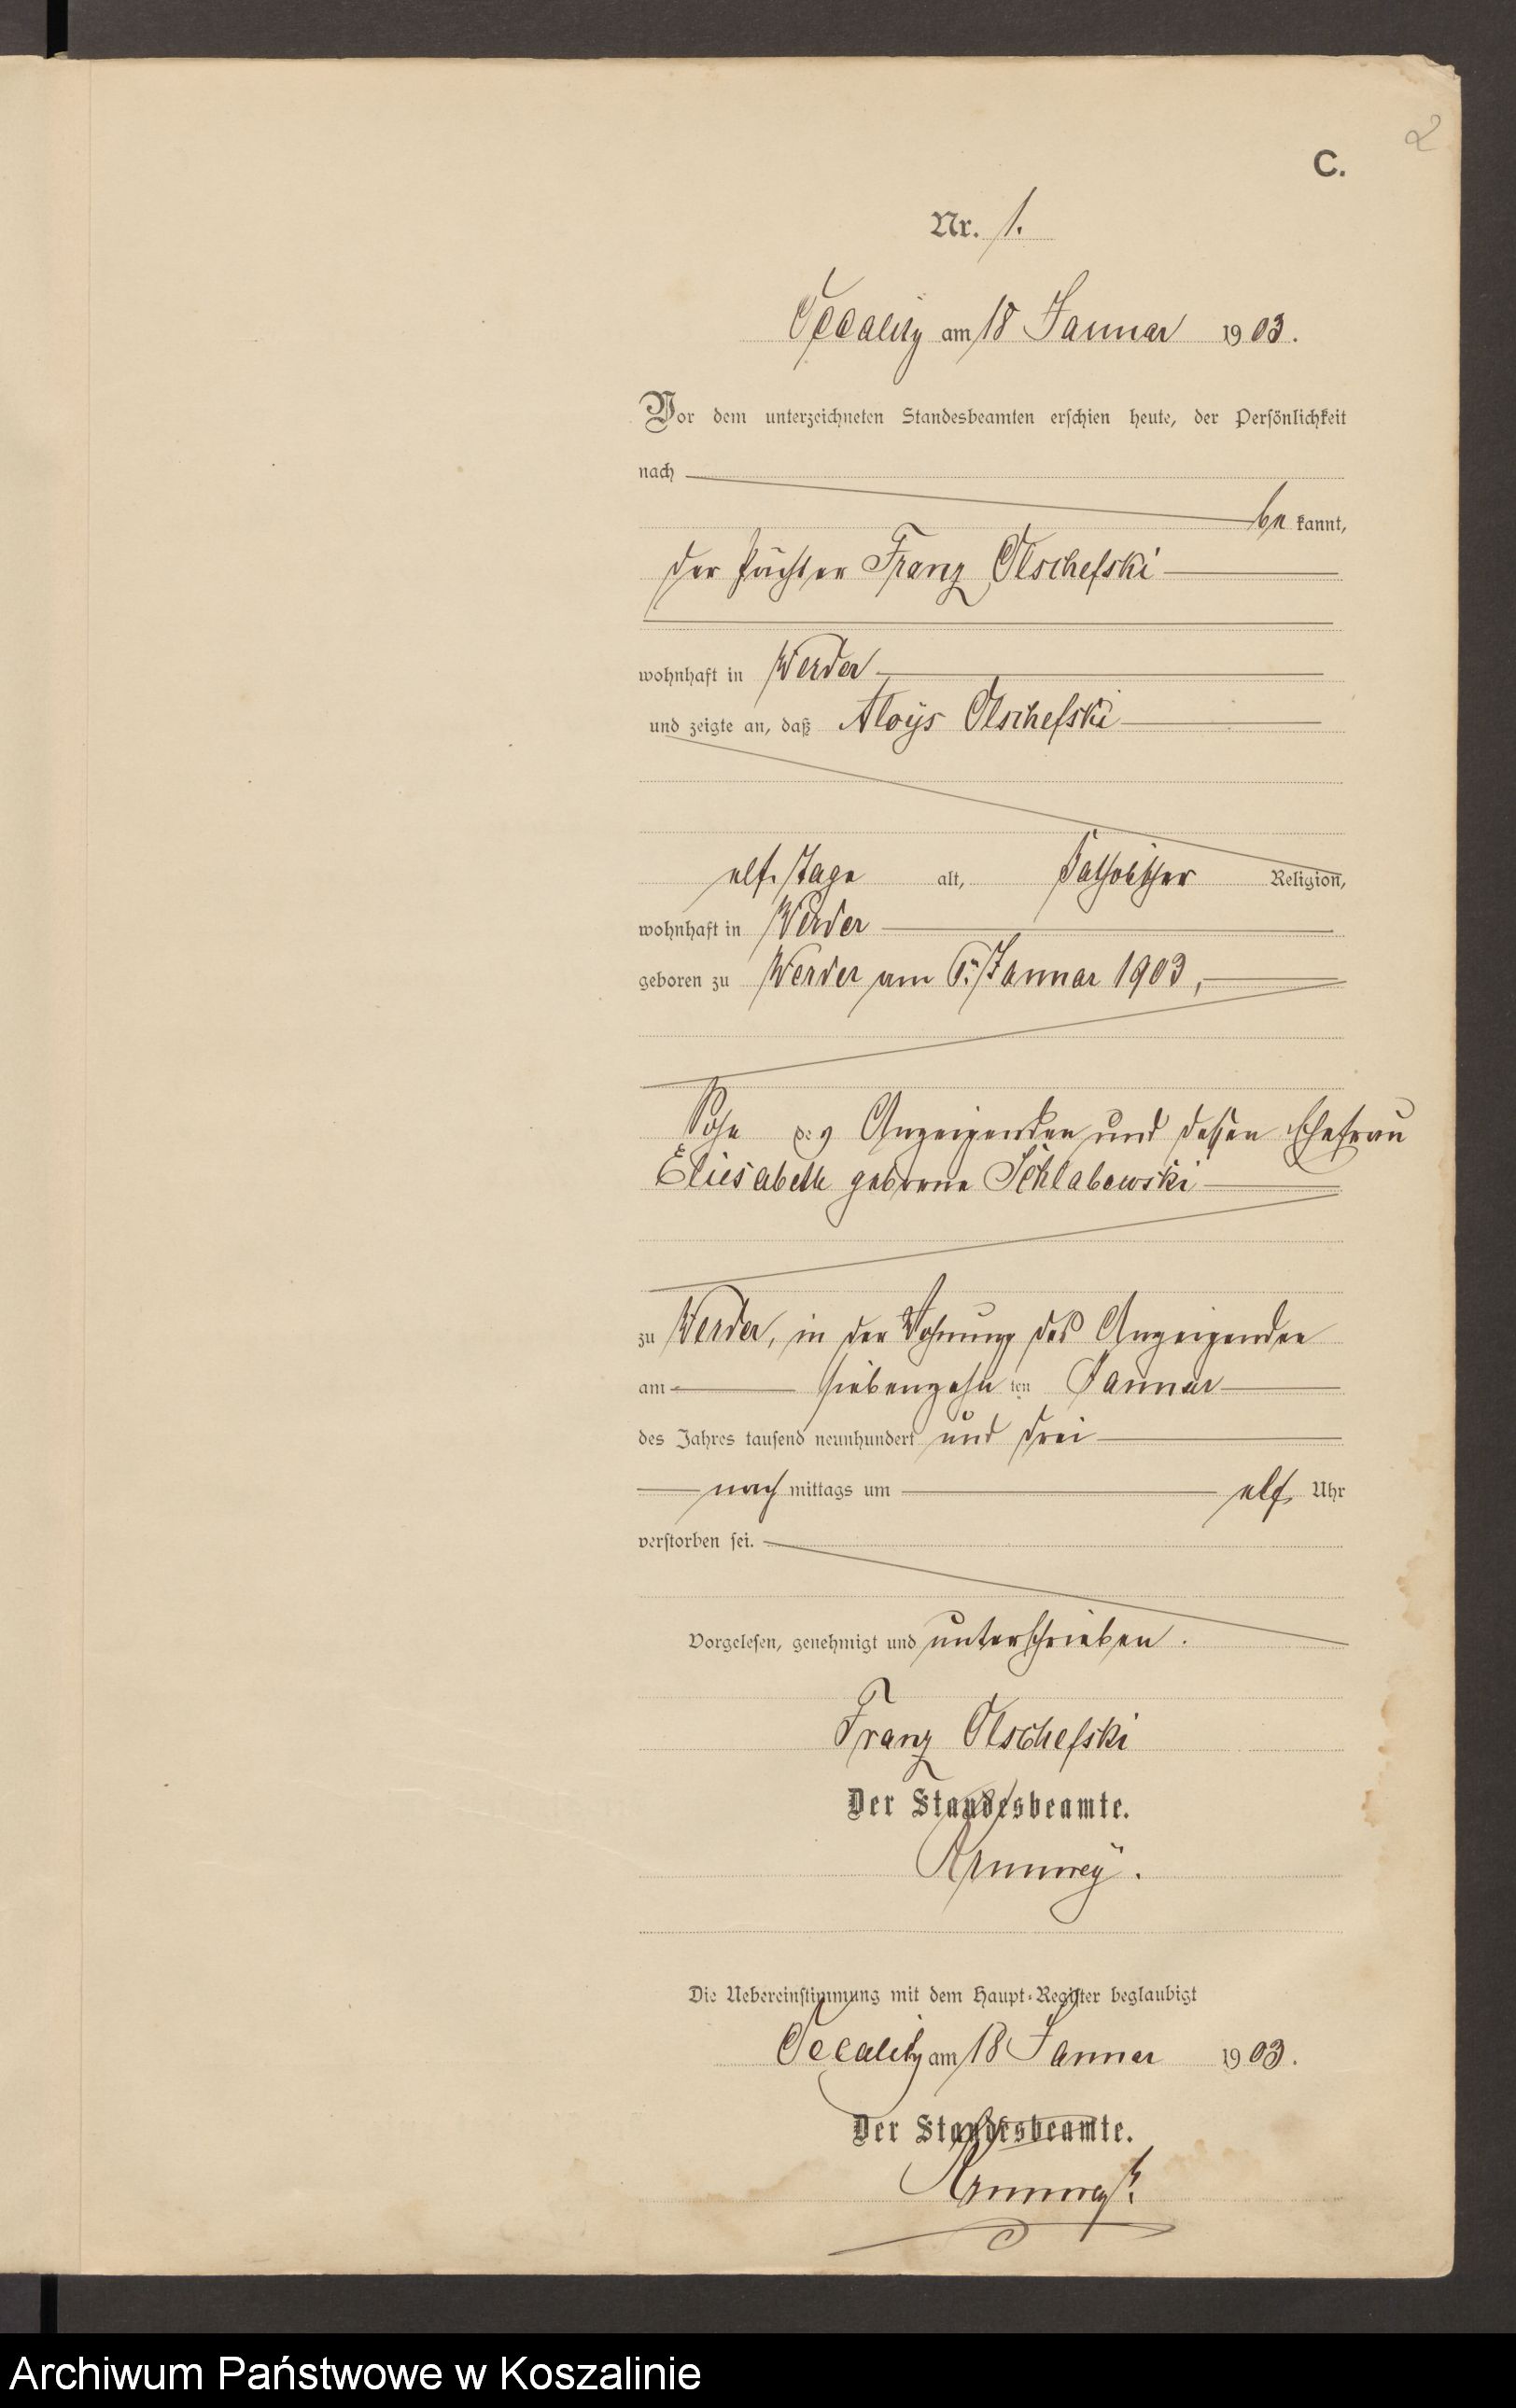 2
C.
Nr. 1.
am 18 Januar 1903.
Vor dem unterzeichneten Standesbeamten erschien heute, der Persönlichkeit
nach
be kannt,
der Pächter Franz Olschefski
wohnhaft in Werder
und zeigte an, daß Aloÿs Olschefski
elf Tage alt, katholischer Religion,
wohnhaft in Werder
geboren zu Werder am 6. Januar 1903,
Sohn des Anzeigenden und dessen Ehefrau
Eliesabeth geborene Schlabowski
zu Werder, in der Wohnung des Anzeigenden
am siebenzehn ten Januar
des Jahres tausend neunhundert und drei
nach mittags um elf Uhr
verstorben sei.
Vorgelesen, genehmigt und unterschrieben.
Franz Olschefski
Der Standesbeamte.
Die Uebereinstimmung mit dem Haupt-Register beglaubigt
am 18 Januar 1903.
Der Standesbeamte.
Archiwum Państwowe w Koszalinie